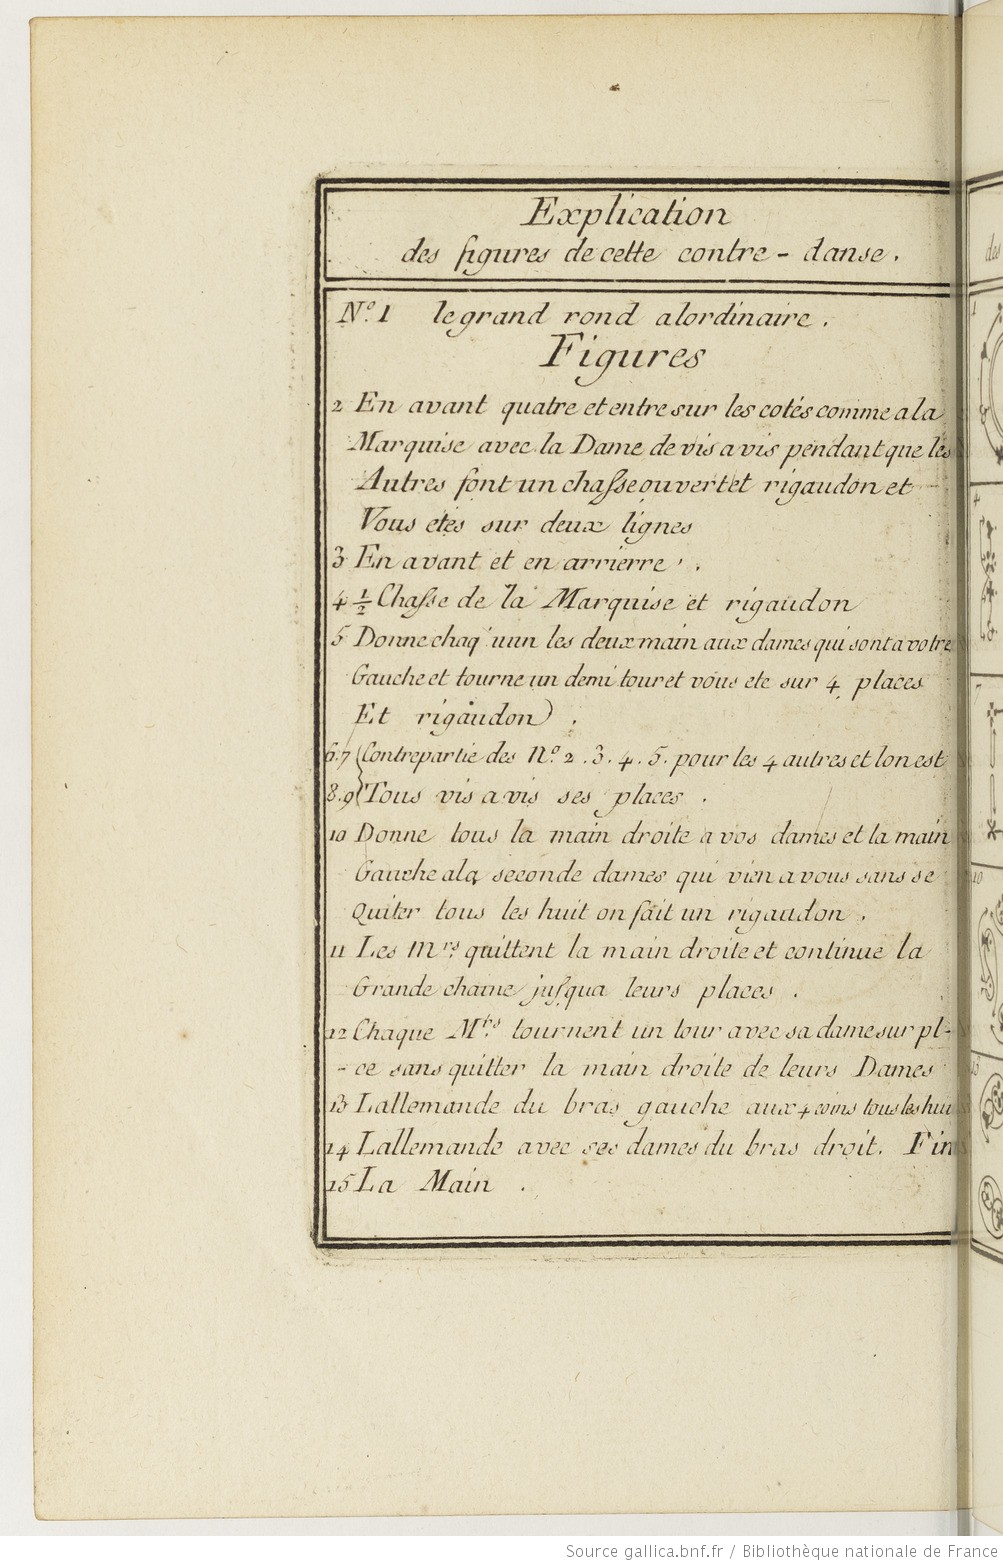 Explication
des figures de cette contre-danse.
N.o 1 le grand rond alordinaire.
Figures
2 En avant quatre et entre sur les cotés comme a la
Marquise avec la Dame de vis a vis pendant que les
Autres font un chasse ouvert et rigaudon et
Vous etes sur deux lignes
3 En avant et en arrierre.
4 ½ Chasse de la Marquise et rigaudon
5 Donne chaq'uun les deux main aux dames qui sont a votre
Gauche et tourne un demi tour et vous ete sur 4 places
Et rigaudon.
6.7 Contrepartie des N.o 2.3.4.5. pour les 4 autres et lon est
8.9 Tous vis a vis ses places.
10 Donne tous la main droite a vos dames et la main
Gauche ala seconde dames qui vien a vous sans se
Quiter tous les huit on fait un rigaudon.
11 Les Mrs. quittent la main droite et continue la
Grande chaine jusqua leurs places.
12 Chaque Mrs. tournent un tour avec sa dame sur pl-
-ce sans quitter la main droite de leurs Dames
13 Lallemande du bras gauche aux 4 coins tous les hui
14 Lallemande avec ses dames du bras droit. Fin
15 La Main.
des
1
4
7
10
13
Source gallica.bnf.fr / Bibliothèque nationale de France